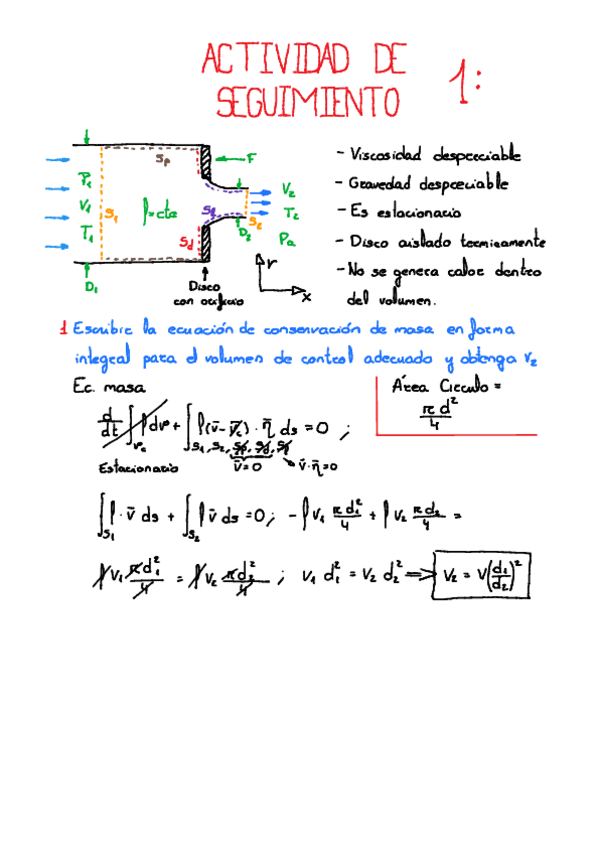 ACTIVIDAD DE
SEGUIMIENTO 1:
Sp
F
P₁
V₁
T₁
S₁
ρ=cte
Sq
Sd
V₂
T₂
D₂
S₂
Pa
D₁
Disco
con orificio
r
x
- Viscosidad despreciable
- Gravedad despreciable
- Es estacionario
- Disco aislado termicamente
- No se genera calor dentro
del volumen.
1 Escribir la ecuación de conservación de masa en forma
integral para el volumen de control adecuado y obtenga V₂
Ec. masa
Área Circulo =
π d² / 4
d/dt ∫_Vc ρ dv + ∫_S₁,S₂,Sp,Sd,Sq ρ(v̄ - v̄c) · n̄ ds = 0 ;
Estacionario v̄=0 v̄·n̄=0
∫_S₁ ρ · v̄ ds + ∫_S₂ ρ v̄ ds = 0 ; - ρ V₁ π d₁² / 4 + ρ V₂ π d₂ / 4 =
ρ V₁ π d₁² / 4 = ρ V₂ π d₂² / 4 ; V₁ d₁² = V₂ d₂² => V₂ = V(d₁/d₂)²